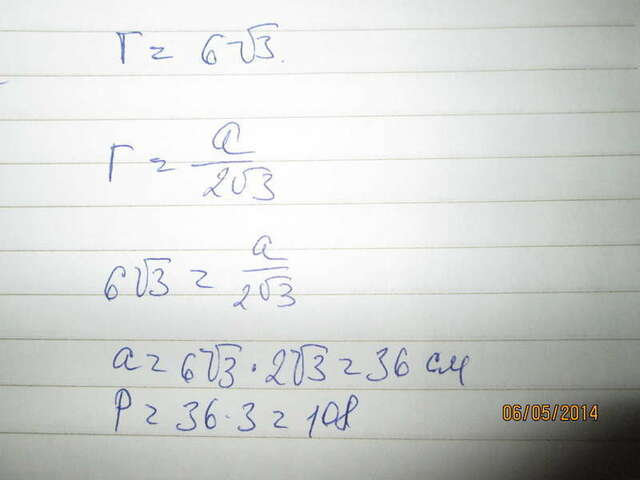 r = 6√3.
r = a/2√3
6√3 = a/2√3
a = 6√3 · 2√3 = 36 см
P = 36 · 3 = 108
06/05/2014